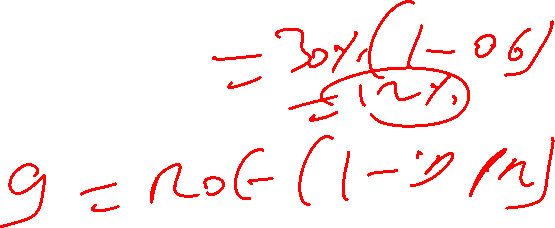 = 30%(1-06)
= 12%
g = ROE (1-D/R)